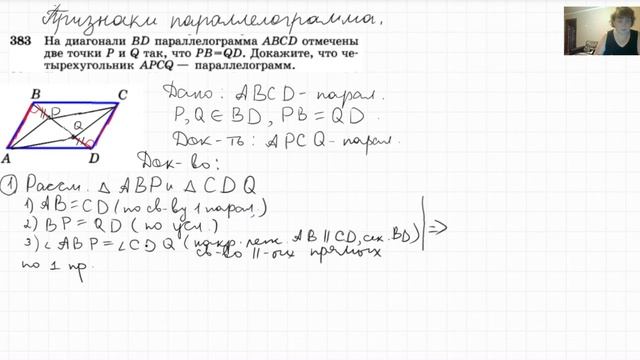 Признаки параллелограмма.
383 На диагонали BD параллелограмма ABCD отмечены
две точки P и Q так, что PB=QD. Докажите, что че-
тырехугольник APCQ — параллелограмм.
B C
P
Q
A D
Дано: ABCD - парал.
P, Q ∈ BD, PB = QD.
Док-ть: APCQ - парал.
Док-во:
① Рассм. △ ABP и △ CDQ
1) AB = CD (по св-ву 1 парал.)
2) BP = QD (по усл.)
3) ∠ABP = ∠CDQ (накр. леж. AB || CD, сек. BD) =>
св-во ||-ых прямых
по 1 пр.